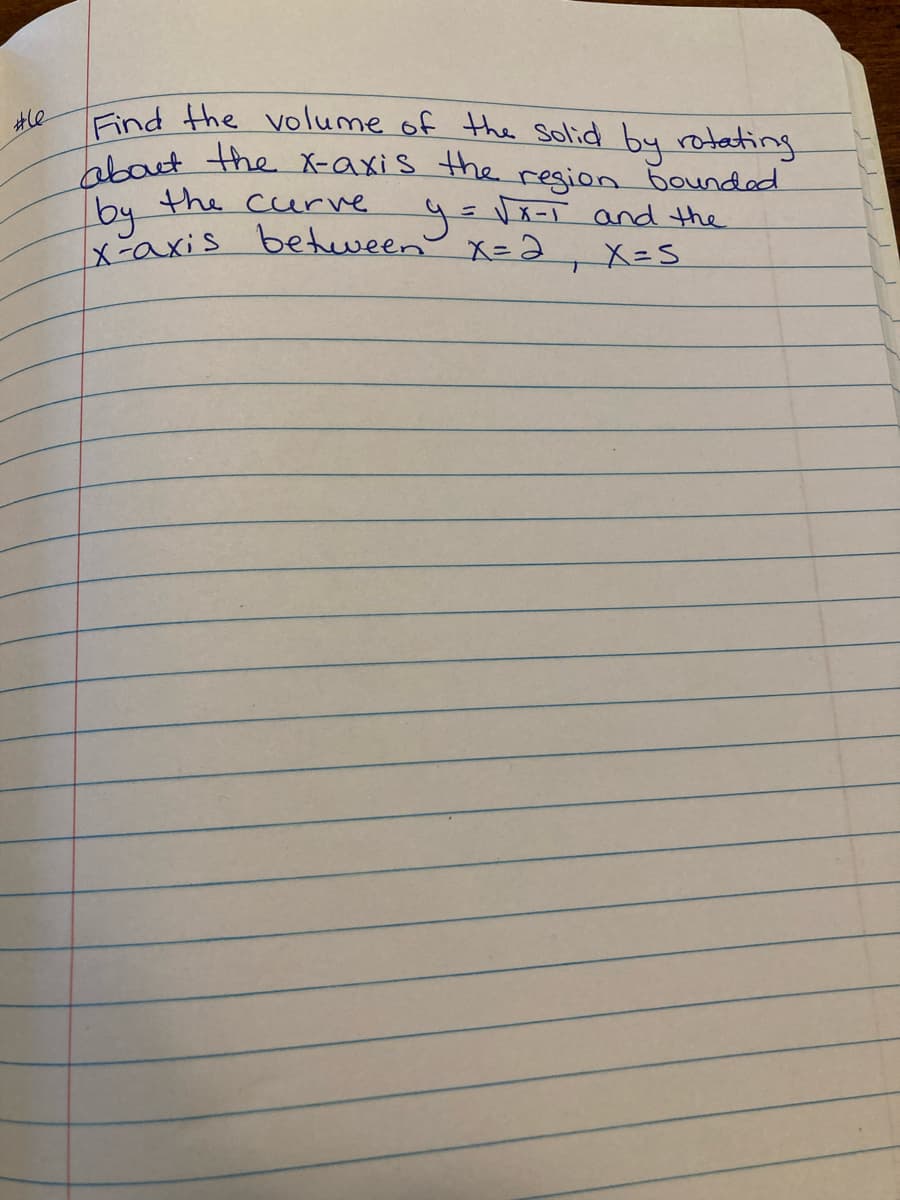 #6 Find the volume of the solid by rotating
about the x-axis the region bounded
by the curve y = √x-1 and the
x-axis between x=2, x=5